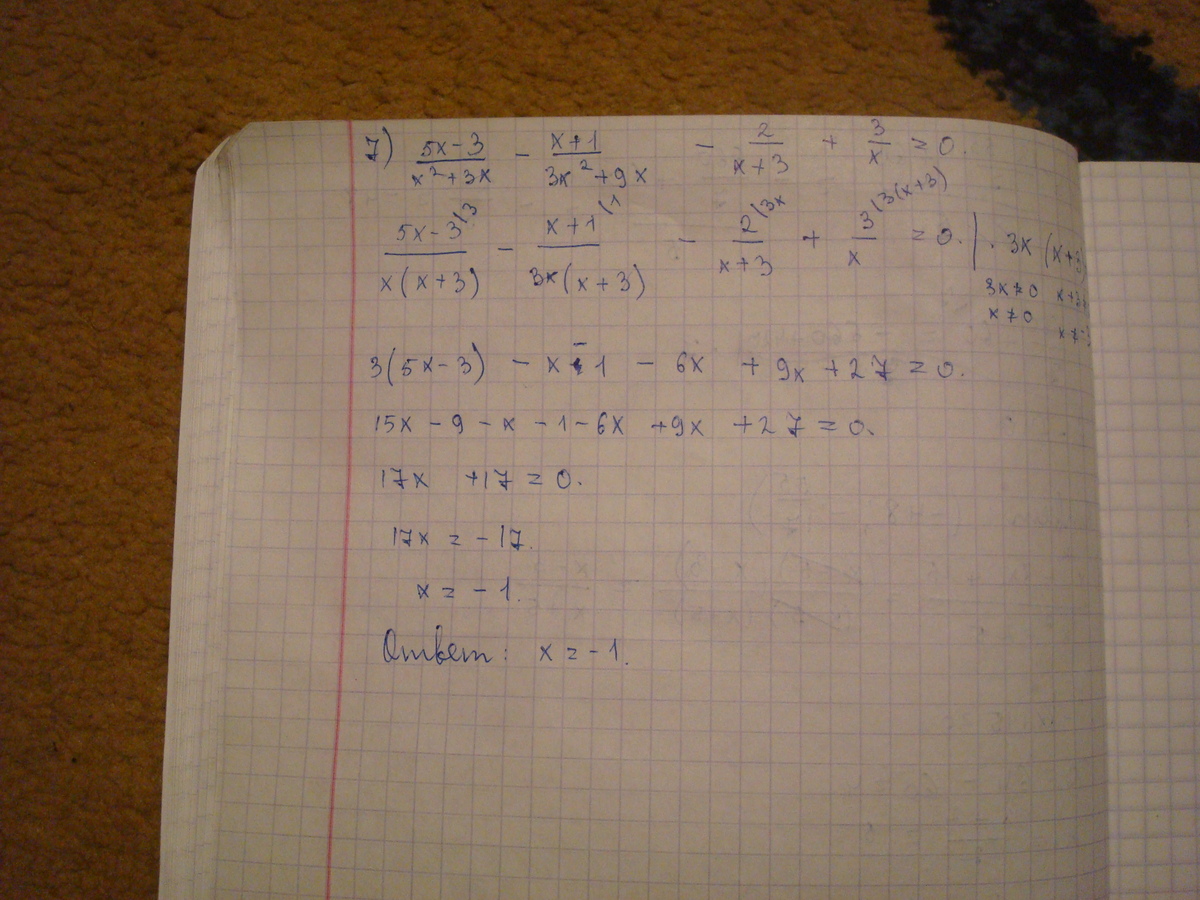 7) (5x-3)/(x²+3x) - (x+1)/(3x²+9x) - 2/(x+3) + 3/x = 0.
(5x-3)/(x(x+3)) ⁽³ - (x+1)/(3x(x+3)) ⁽¹ - 2/(x+3) ⁽³ˣ + 3/x ⁽³⁽ˣ⁺³⁾ = 0. | · 3x(x+3)
3x≠0 x+3≠
x≠0 x≠-3
3(5x-3) - x - 1 - 6x + 9x + 27 = 0.
15x - 9 - x - 1 - 6x + 9x + 27 = 0.
17x + 17 = 0.
17x = -17.
x = -1.
Ответ: x = -1.